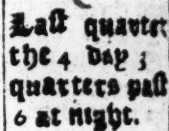 Last quarter
the 4 day 3
quarters past
6 at night.